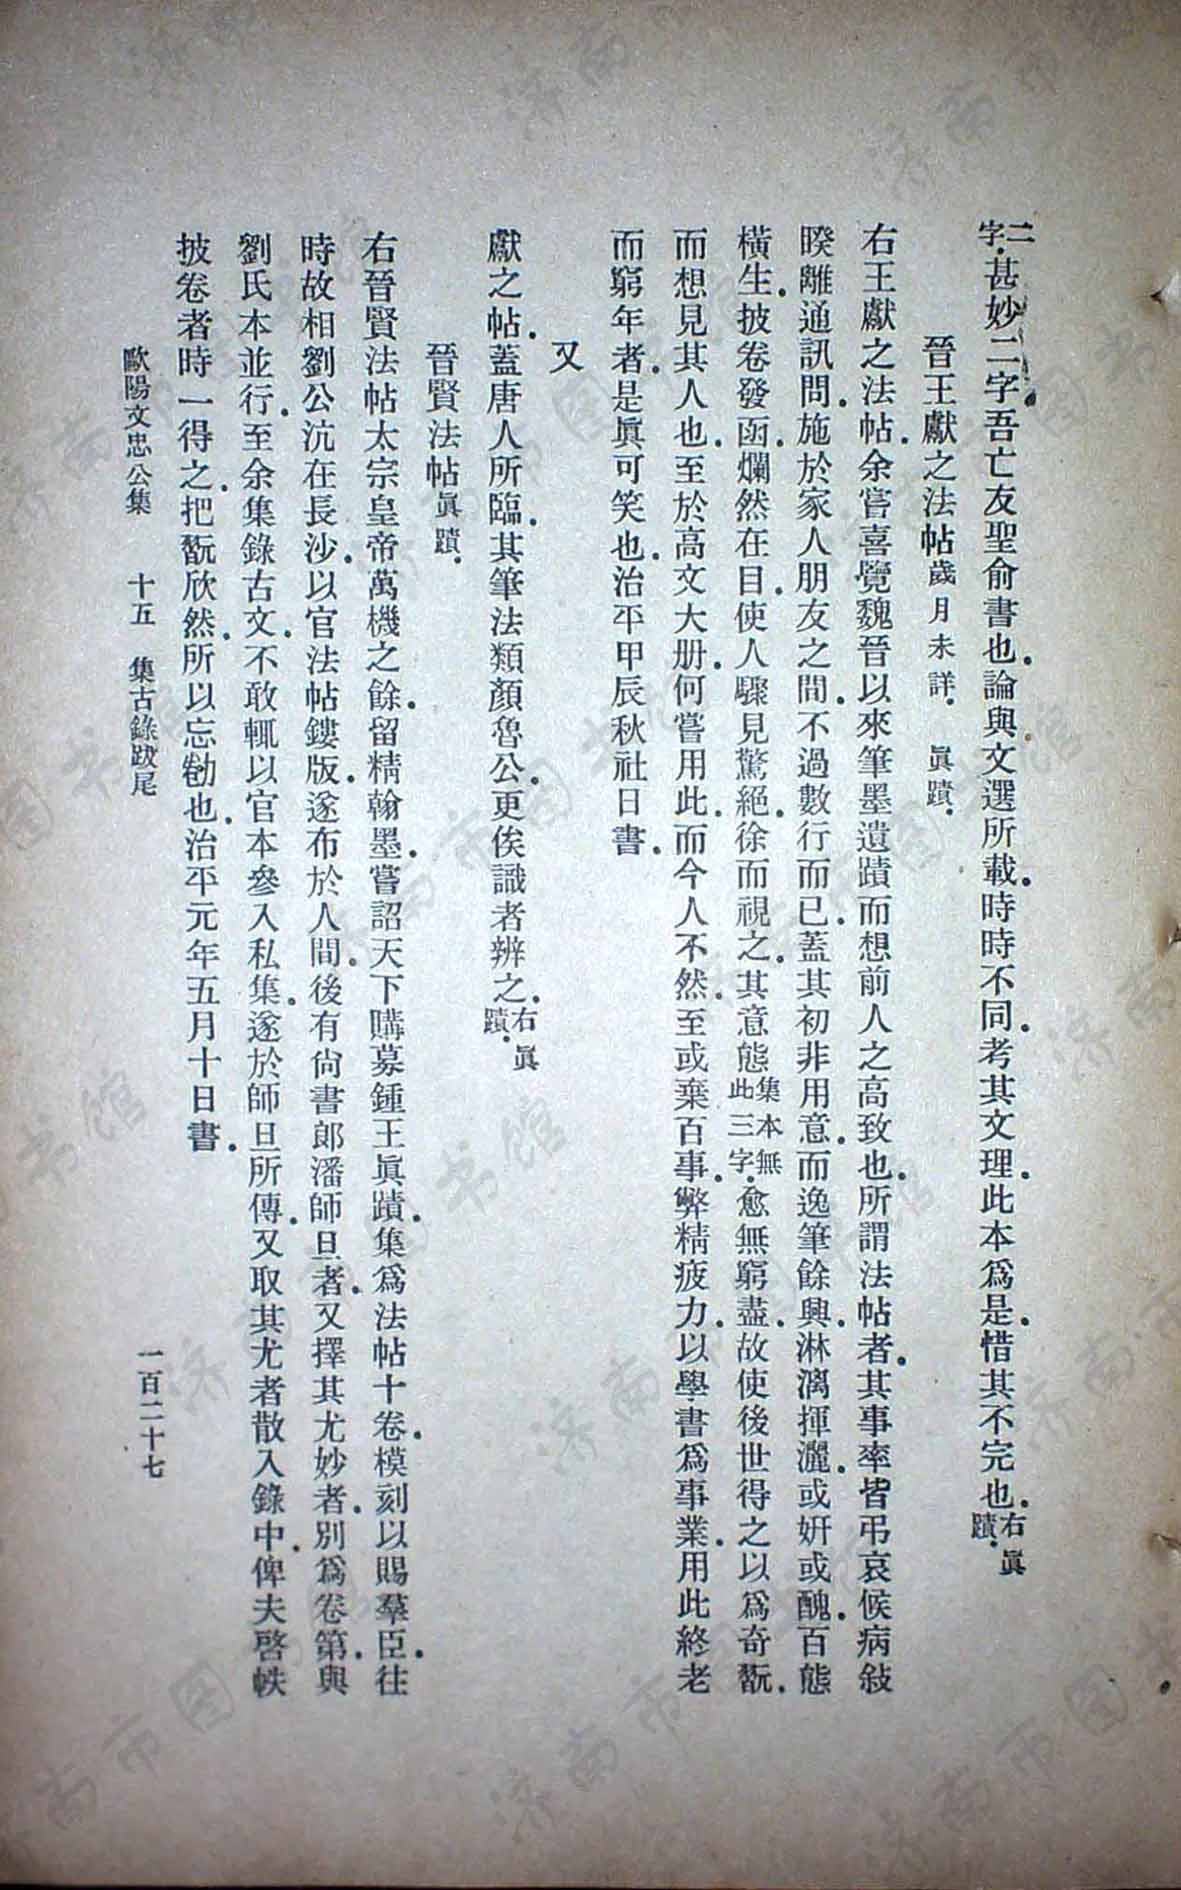 二字.甚妙二字吾亡友聖俞書也.論與文選所載.時時不同.考其文理.此本爲是.惜其不完也.右眞蹟.
晉王獻之法帖歲月未詳.眞蹟.
右王獻之法帖.余嘗喜覽魏晉以來筆墨遺蹟而想前人之高致也.所謂法帖者.其事率皆弔哀候病敍
暌離通訊問.施於家人朋友之間.不過數行而已.蓋其初非用意.而逸筆餘興.淋漓揮灑.或妍或醜.百態
橫生.披卷發函.爛然在目.使人驟見驚絕.徐而視之.其意態集本無此三字.愈無窮盡.故使後世得之以爲奇翫.
而想見其人也.至於高文大册.何嘗用此.而今人不然.至或棄百事.弊精疲力.以學書爲事業.用此終老
而窮年者.是眞可笑也.治平甲辰秋社日書.
又
獻之帖.蓋唐人所臨.其筆法類顏魯公.更俟識者辨之.右眞蹟.
晉賢法帖眞蹟.
右晉賢法帖太宗皇帝萬機之餘.留精翰墨.嘗詔天下購募鍾王眞蹟.集爲法帖十卷.模刻以賜羣臣.往
時故相劉公沆在長沙.以官法帖鏤版.遂布於人間.後有尚書郎潘師旦者.又擇其尤妙者.別爲卷第.與
劉氏本並行.至余集錄古文.不敢輒以官本參入私集.遂於師旦所傳.又取其尤者散入錄中.俾夫啓帙
披卷者時一得之.把翫欣然.所以忘勌也.治平元年五月十日書.
歐陽文忠公集 十五 集古錄跋尾 一百二十七
济南市图书馆